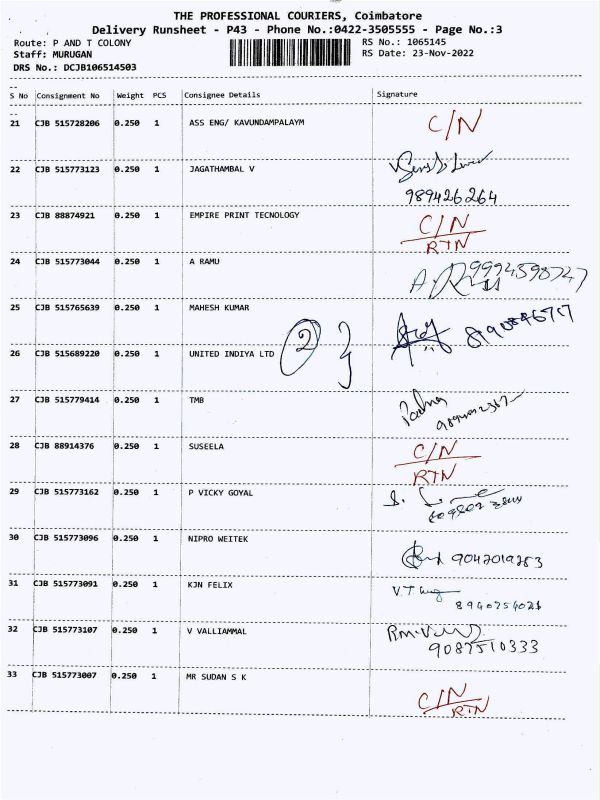 THE PROFESSIONAL COURIERS, Coimbatore
Delivery Runsheet - P43 - Phone No.:0422-3505555 - Page No.:3
Route: P AND T COLONY RS No.: 1065145
Staff: MURUGAN RS Date: 23-Nov-2022
DRS No.: DCJB106514503
--
S No Consignment No Weight PCS Consignee Details Signature
--
21 CJB 515728206 0.250 1 ASS ENG/ KAVUNDAMPALAYM C/N
22 CJB 515773123 0.250 1 JAGATHAMBAL V
989426264
23 CJB 88874921 0.250 1 EMPIRE PRINT TECNOLOGY C/N
RTN
24 CJB 515773044 0.250 1 A RAMU 9994598747
25 CJB 515765639 0.250 1 MAHESH KUMAR
2 }
26 CJB 515689220 0.250 1 UNITED INDIYA LTD
27 CJB 515779414 0.250 1 TMB Padma
28 CJB 88914376 0.250 1 SUSEELA C/N
RTN
29 CJB 515773162 0.250 1 P VICKY GOYAL
30 CJB 515773096 0.250 1 NIPRO WEITEK 9042019283
31 CJB 515773091 0.250 1 KJN FELIX V.T
8940754021
32 CJB 515773107 0.250 1 V VALLIAMMAL
9087510333
33 CJB 515773007 0.250 1 MR SUDAN S K C/N
RTN